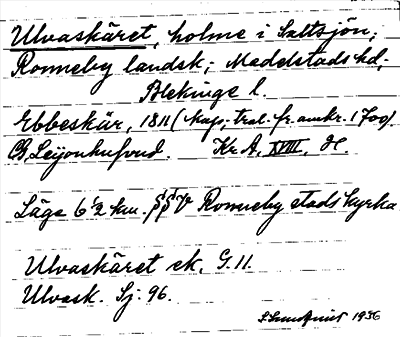 Ulvaskäret, holme i Saltsjön;
Ronneby landsk; Medelstads hd,
Blekinge l.
Ebbeskär, 1811 (kop, trol. fr. omkr. 1700).
B. Leijonhufvud. Kr. A. XVIII, H.
Läge 6½ km. SSV Ronneby stads kyrka
Ulvaskäret ek. G. 11.
Ulvask. Sj. 96.
1936